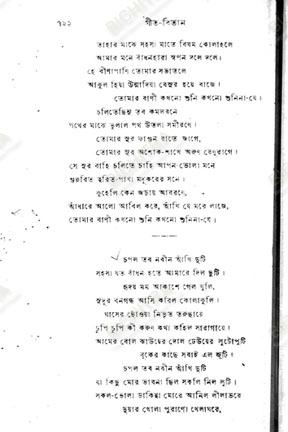 ৭২২ গীত-বিতান
তাহার মাঝে সহসা মাতে বিষম কোলাহলে
আমার মনে বাঁধনহারা স্বপন দলে দলে।
হে বীণাপাণি তোমার সভাতলে
আকুল হিয়া উন্মাদিয়া বেসুর হয়ে বাজে।
তোমার বাণী কখনো শুনি কখনো শুনিনা-যে।
চলিতেছিনু তব কমলবনে
পথের মাঝে ভুলাল পথ উতলা সমীরণে।
তোমার সুর ফাগুন রাতে জাগে,
তোমার সুর অশোক-শাখে অরুণ রেণুরাগে।
সে সুর বাহি চলিতে চাহি আপন-ভোলা মনে
গুঞ্জরিত ত্বরিত-পাখা মধুকরের সনে।
কুহেলি কেন জড়ায় আবরণে,
আঁধারে আলো আবিল করে, আঁখি যে মরে লাজে,
তোমার বাণী কখনো শুনি কখনো শুনিনা-যে।
চপল তব নবীন আঁখি দুটি
সহসা যত বাঁধন হতে আমারে দিল ছুটি।
হৃদয় মম আকাশে গেল খুলি,
সুদূর বনগন্ধ আসি করিল কোলাকুলি।
ঘাসের ছোঁওয়া নিভৃত তরুছায়ে
চুপি চুপি কী করুণ কথা কহিল সারাগায়ে।
আমের বোল ঝাউয়ের দোল ঢেউয়ের লুটোপুটি
বুকের কাছে সবাই এল জুটি।
চপল তব নবীন আঁখি দুটি
যা কিছু মোর ভাবনা ছিল সকলি নিল লুটি।
সকল-ভোলা ডাকিয়া মোরে আনিল লীলাভরে
দুয়ার খোলা পুরানো খেলাঘরে,